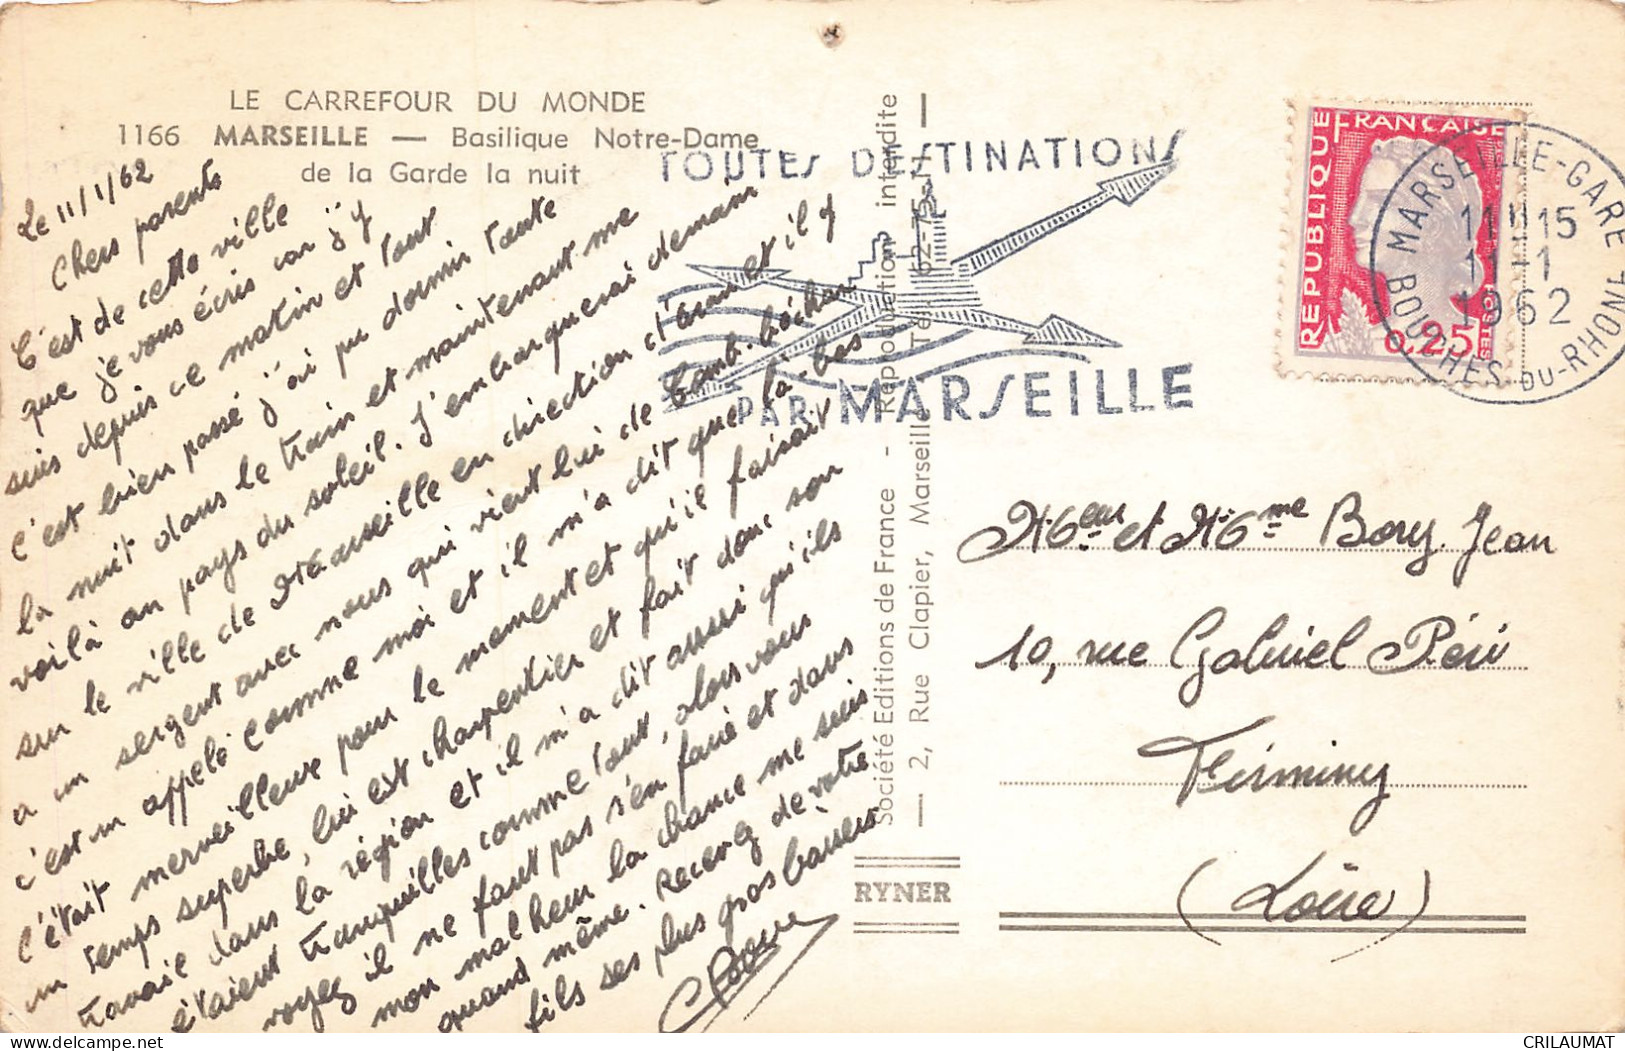 LE CARREFOUR DU MONDE
1166 MARSEILLE — Basilique Notre-Dame
de la Garde la nuit
Le 11/1/62
Chers parents
C'est de cette ville
que je vous écris car j'y
suis depuis ce matin et tout
c'est bien passé j'ai pu dormir toute
la nuit dans le train et maintenant me
voilà au pays du soleil. J'embarquerai demain
sur le ville de Marseille en direction d'Oran et il y
a un sergent avec nous qui vient lui de Béchar
c'est un appelé comme moi et il m'a dit que là-bas
c'était merveilleux pour le moment et qu'il faisait
un temps superbe, lui est charpentier et fait donc son
travail dans la région et il m'a dit aussi qu'ils
étaient tranquilles comme tout, alors vous
voyez il ne faut pas s'en faire et dans
mon malheur la chance me suis
quand même. Recevez de votre
fils ses plus gros baisers
TOUTES DESTINATIONS
PAR MARSEILLE
Société Editions de France - Reproduction interdite
— 2, Rue Clapier, Marseille - Tel. 62-75-17 —
RYNER
REPUBLIQUE FRANÇAISE
POSTES
0,25
MARSEILLE-GARE
11H15
11-1
1962
BOUCHES-DU-RHONE
Mr et Mme Bory Jean
10, rue Gabriel Péri
Firminy
(Loire)
CRILAUMAT